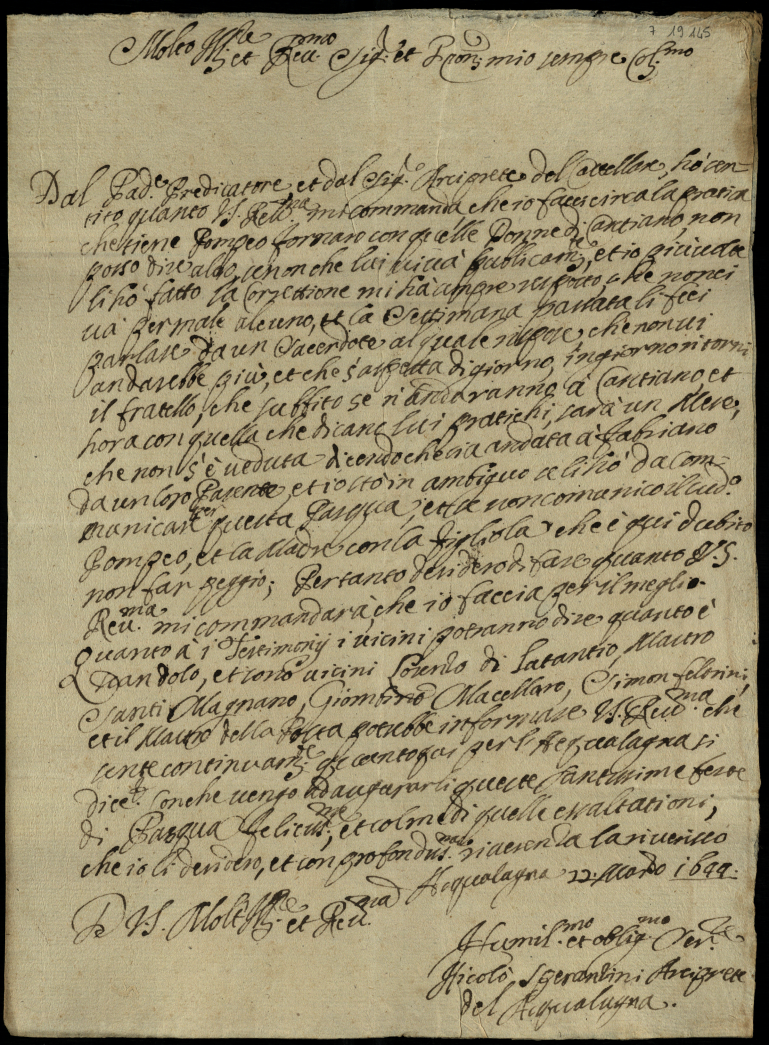 7 19 145
Molto Ill.re et Reu.mo Sig.r et Pron mio sempre Col.mo
Dal Pad.e Predicatore, et dal Sig.r Arciprete del Cauellare, hò sen-
tito quanto V.S. Reu.ma mi commanda che io facci circa la pratica
che tiene Pompeo fornaro con quelle Donne di Cantiano, non
posso dire altro, se non che lui ui uà publicam.te, et io più uolte
li hò fatto la Correttione mi hà sempre risposto, che non ci
uà per male alcuno, et la Settimana passata li feci
parlare da un Sacerdote al quale rispose, che non ui
andarebbe più, et che s'aspetta di giorno, in giorno ritorni
il fratello, che subbito se n'andaranno à Cantiano, et
hora con quella che dicano lui pratichi, sarà un Mese,
che non s'è ueduta dicendo che sia andata à Fabriano
da un loro Parente, et io sto in ambiguo se li hò da com-
manicare per questa Pasqua, et se non comunico il sud.o
Pompeo, et la Madre con la figliola che è qui dubito
non far peggio; Pertanto desidero di fare quanto V.S.
Reu.ma mi commandarà, che io faccia per il meglio.
Quanto à i Testimonij i uicini potranno dire quanto è
scandolo, et sono uicini Lorenzo di Latantio, Mauro
Santi Magnano, Giombino Macellaro, Simon feltrini,
et il Mastro della Posta potrebbe informare V.S. Reu.ma che
sente continuam.te quanto qui per l'Acqualagna si
dice. Con che uengo ad augurarli queste Santissime feste
di Pasqua felicis.me, et colme di quelle essaltationi,
che io li desidero, et con profondis.ma riuerenza la riuerisco
Acqualagna 22 Marzo 1644.
D V.S. Molt Ill.re et Reu.ma
Humil.mo et oblig.mo Ser.re
Nicolò Sperandini Arciprete
del Acqualagna.